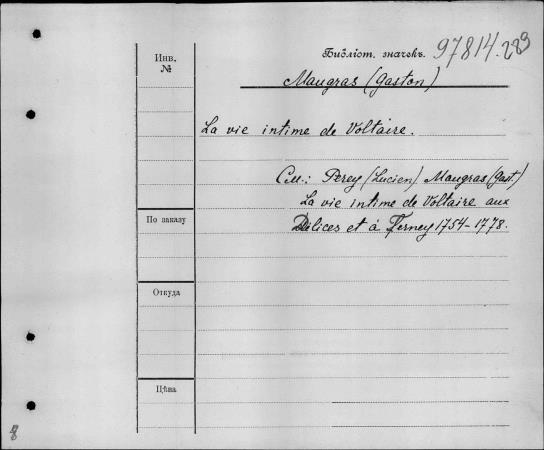 Инв.
№
Библіот. значекъ. 97814.283
Maugras (Gaston)
La vie intime de Voltaire.
См.: Perey (Lucien) Maugras (Gast)
La vie intime de Voltaire aux
Délices et à Ferney 1754-1778.
По заказу
Откуда
Цѣна